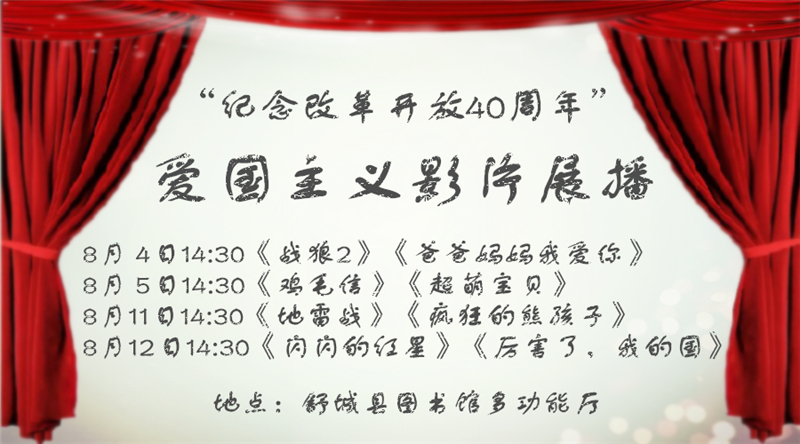 “纪念改革开放40周年”
爱国主义影片展播
8月 4日14:30《战狼2》《爸爸妈妈我爱你》
8月 5日14:30《鸡毛信》《超萌宝贝》
8月11日14:30《地雷战》《疯狂的熊孩子》
8月12日14:30《闪闪的红星》《厉害了，我的国》
地点：舒城县图书馆多功能厅